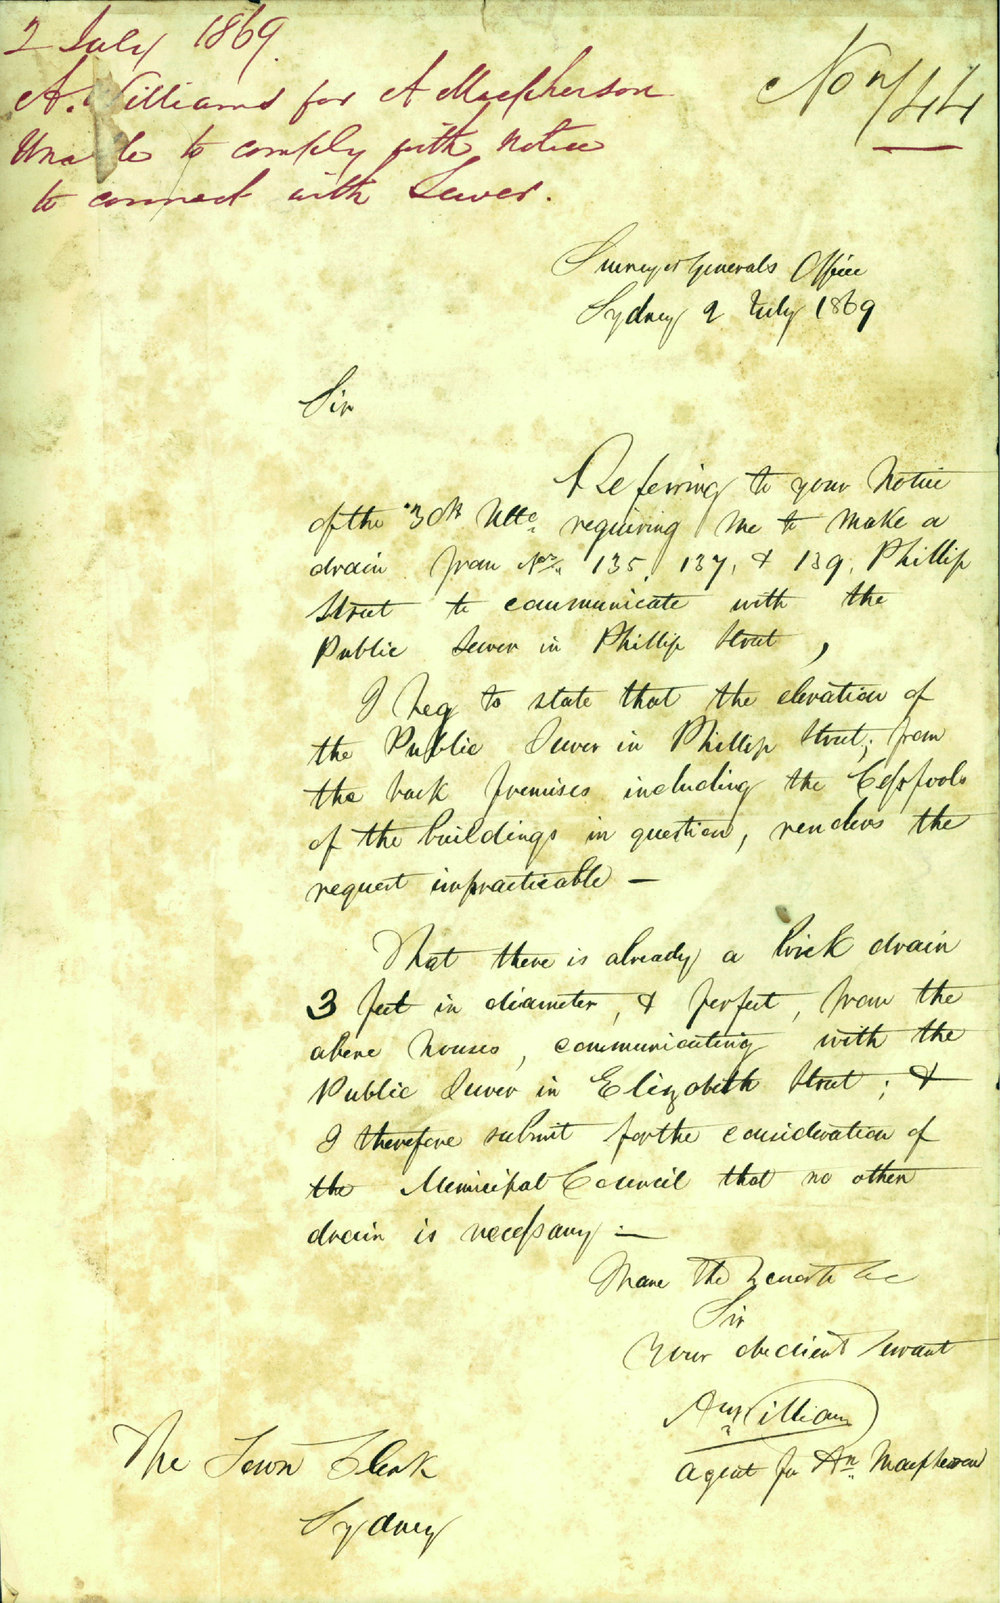 2 July 1869.
A. Williams for A Macpherson
Unable to comply with notice
to connect with Sewer.
No 7/44
Surveyor Generals Office
Sydney 2 July 1869
Sir
Referring to your Notice
of the 30th Ulto requiring me to make a
drain from Nos. 135, 137, & 139, Phillip
Street to communicate with the
Public Sewer in Phillip Street,
I beg to state that the elevation of
the Public Sewer in Phillip Street, from
the back premises including the Cesspools
of the buildings in question, renders the
request impracticable —
That there is already a brick drain
3 feet in diameter, & perfect, from the
above houses, communicating with the
Public Sewer in Elizabeth Street; &
I therefore submit for the consideration of
the Municipal Council that no other
drain is necessary —
I have the honor to be
Sir
Your obedient Servant
Williams
Agent for An. Macpherson
The Town Clerk
Sydney